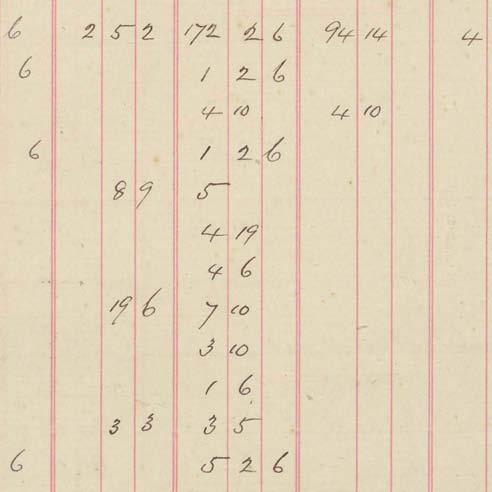 6 2 5 2 172 2 6 94 14 4
6 1 2 6
4 10 4 10
6 1 2 6
8 9 5
4 19
4 6
19 6 7 10
3 10
1 6
3 3 3 5
6 5 2 6